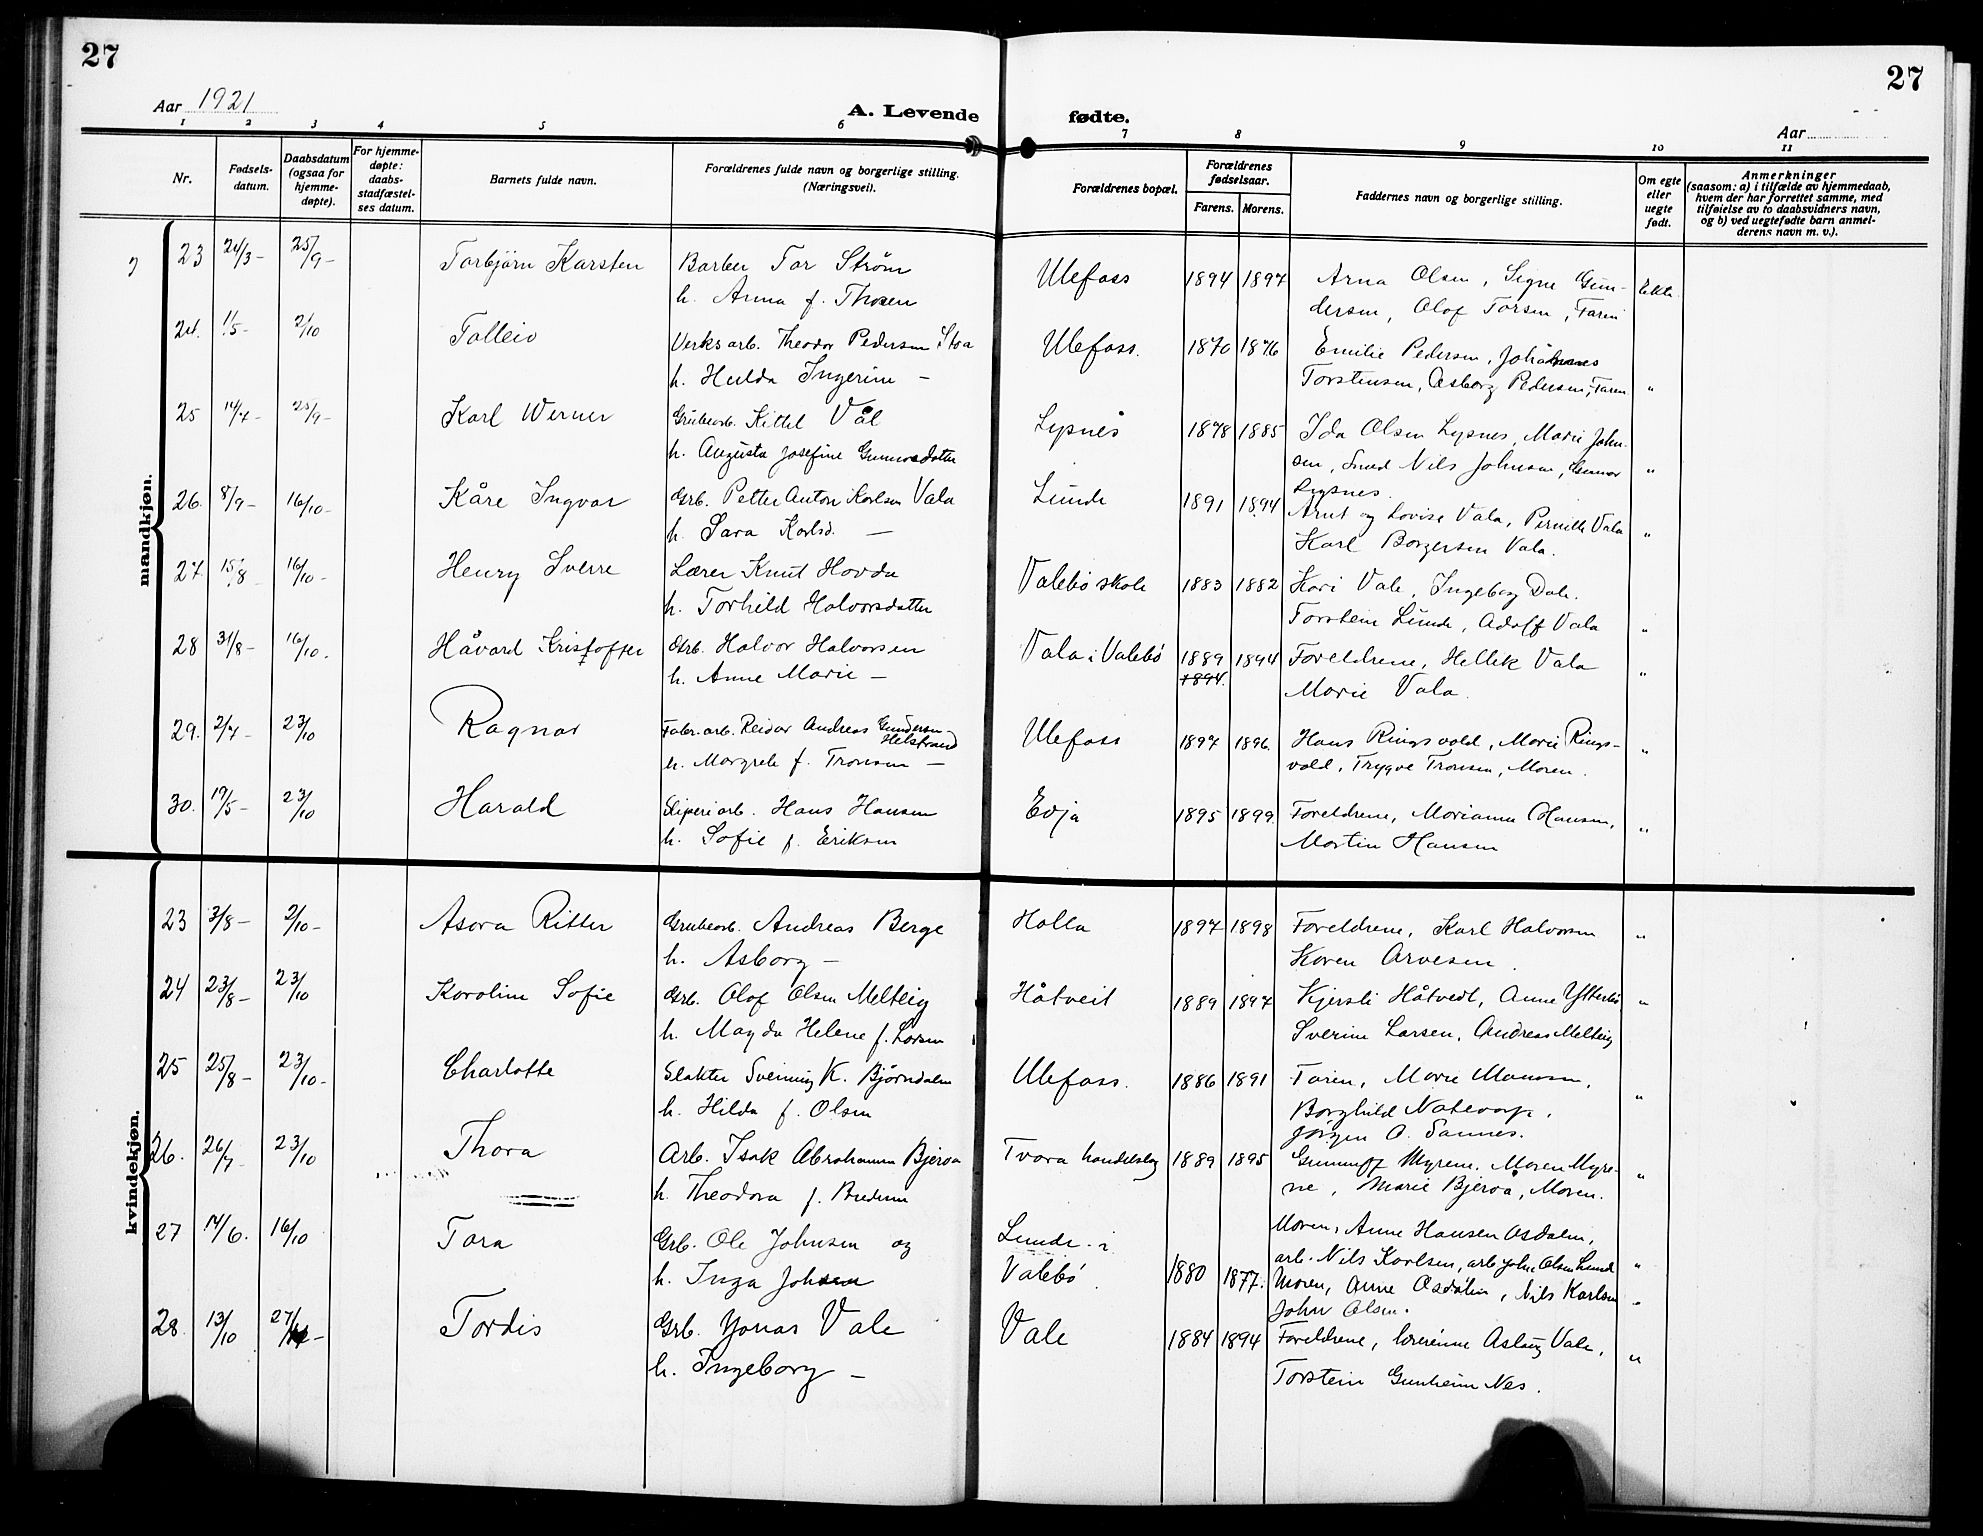 27
27
Aar 1921
A. Levende fødte.
Aar
1 2 3 4 5 6 7 8 9 10 11
Nr.
Fødsels-
datum.
Daabsdatum
(ogsaa for
hjemme-
døpte).
For hjemme-
døpte:
daabs-
stadfæstel-
ses datum.
Barnets fulde navn.
Forældrenes fulde navn og borgerlige stilling.
(Næringsvei).
Forældrenes bopæl.
Forældrenes
fødselsaar.
Farens. Morens.
Faddernes navn og borgerlige stilling.
Om egte
eller
uegte
født.
Anmerkninger
(saasom: a) i tilfælde av hjemmedaab,
hvem der har forrettet samme, med
tilføielse av to daabsvidners navn,
og b) ved uegtefødte barn anmel-
derens navn m. v.).
mandkjøn.
23 24/3- 25/9- Torbjørn Karsten Barber Tor Strøm Ulefoss 1894 1897 Arna Olsen, Signe Gun- Ekte.
h. Anna f. Thosen dersen, Olof Torsen, Faren
24. 11/5- 2/10 Tolleiv Verksarb. Theodor Pedersen Stoa Ulefoss. 1870 1876 Emilie Pedersen, Johannes
h. Hulda Ingerine - Torstensen, Asborg Pedersen, Faren "
25 14/7- 25/9- Karl Werner Grubearb. Kittel Vål Lysnes 1878 1885 Ida Olsen Lysnes, Marie John-
h. Augusta Josefine Gunnarsdatter sen, Smed Nils Johnsen, Gunnar "
Lysnes.
26. 8/9- 16/10- Kåre Ingvar Grb. Petter Anton Karlsen Vala Lunde 1891 1894 Arnt og Lovise Vala, Pernille Vala "
h. Sara Karlsd. - Karl Borgersen Vala.
27. 15/8 16/10- Henry Sverre Lærer Knut Hovda Valebø skole 1883 1882 Kari Vale, Ingeborg Dale.
h. Torhild Halvorsdatter Torstein Lunde, Adolf Vala "
28 31/8- 16/10. Håvard Kristoffer Grb. Halvor Halvorsen Vala i Valebø 1889 1894 Foreldrene, Hellik Vala "
h. Anne Marie - 1894. Marie Vala.
29. 2/7- 23/10 Ragnar Fabr. arb. Reidar Andreas Gundersen Ulefoss 1897 1896. Hans Ringsvold, Marie Rings- "
Helstrand
h. Margrete f. Tronsen - vold, Trygve Tronsen, Moren.
30. 19/5- 23/10 Harald Sliperiarb. Hans Hansen Evja 1895 1899. Foreldrene, Marianne Hansen, "
h. Sofie f. Eriksen Martin Hansen
kvindekjøn.
23 3/8- 2/10- Asora Ritter Grubearb. Andreas Berge Holla 1897 1898 Foreldrene, Karl Halvorsen "
h. Asborg - Karen Arvesen.
24 23/8- 23/10 Karoline Sofie Grb. Olaf Olsen Melteig Håtveit 1889 1897 Kjersti Håtvedt, Anne Ytterbø "
h. Magda Helene f. Larsen Sverine Larsen, Andreas Melteig
25 25/8- 23/10- Charlotte Slakter Sveinung K. Bjørndalen Ulefoss. 1886 1891 Faren, Marie Monsen,
h. Hilda f. Olsen Borghild Natevarp, "
Jørgen O. Sannes.
26. 26/7- 23/10 Thora Arb. Isak Abrahamsen Bjerva Tvara handelslag 1889 1895 Myrene. Maren Myre- "
h. Theodora f. ne, Marie Bjerva, Moren.
27 14/6. 16/10 Tora Grb. Ole Johnsen og Lunde i Moren, Anne Hansen Åsdalen,
h. Inga Johnsen Valebø. 1880 1877. arb. Nils Karlsen, arb. John Olsen Lunde "
Moren, Anne Åsdalen, Nils Karlsen "
John Olsen.
28. 13/10 27/ - Tordis Grb. Jonas Vale Vale 1884 1894 Foreldrene, lærerinne Aslaug Vale, "
h. Ingeborg - Torstein Gunheim Nes.